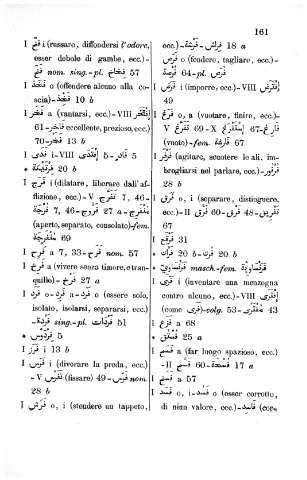 161
I فَخَّ i (russare, diffondersi l'odore,
esser debole di gambe, ecc.) -
فَخّ nom. sing.-pl. فِخَاخ 57
I فَخَذَ o (offendere alcuno alla co-
scia)-فَخِذ 10 b
I فَخَرَ a (vantarsi, ecc.)-VIII اِفْتَخَرَ
61-فَاخِر eccellente, prezioso, ecc.)
70-فَخْر 13 b
I فَدَى i-VIII اِفْتَدَى 5-فَادٍ
20 b
I فَرَجَ i (dilatare, liberare dall'af-
flizione, ecc.)-V تَفَرَّجَ 7, 46-
7, 46-فَرُّوج 27 a-
(aperto, separato, consolato)-fem.
69
I فَرِحَ a 7, 33-فَرَح nom. 57
I فَرَخَ a (vivere senza timore, o tran-
quillo)-فَرْخ 27 a
I فَرَدَ o-فَرِدَ a-فَرُدَ o (essere solo,
isolato, isolarsi, separarsi, ecc.)
sing.-pl. 51
فِرْدَوْس 5
I فَرَزَ i 13 b
I فَرَسَ i (divorare la preda, ecc.)
-V تَفَرَّسَ (fissare) 49-فَرَس nom.
28 b
I فَرَشَ o, i (stendere un tappeto,
ecc.)-فِرَاش 18 a
I فَرَصَ o (fendere, tagliare, ecc.)-
فُرْصَة 64-pl. فُرَص
I فَرَضَ i (imporre, ecc.)-VIII اِفْتَرَضَ
49
I فَرَغَ o, a (vuotare, finire, ecc.)-
V تَفَرَّغَ 69-X اِسْتَفْرَغَ 67-فَارِغ
(vuoto)-fem. فَارِغَة 67
I فَرْفَرَ (agitare, scuotere le ali, im-
brogliarsi nel parlare, ecc.)-
28 b
I فَرَقَ o, i (separare, distinguere,
ecc.)-II فَرَّقَ 60-فَرْق 48-تَفْرِيق
67
I 31
20 b- 20 b
masch.-fem.
I فَرَى i (inventare una menzogna
contro alcuno, ecc.)-VIII اِفْتَرَى
(come فَرَى)-volg. 53- 43
I فَزِعَ a 68
25 a
I فَسُحَ a (far luogo spazioso, ecc.)
-II فَسَّحَ 60-فُسْحَة 17 a
I a 57
I فَسَدَ o, i-فَسُدَ o (esser corrotto,
di niun valore, ecc.)-فَاسِد (cor-